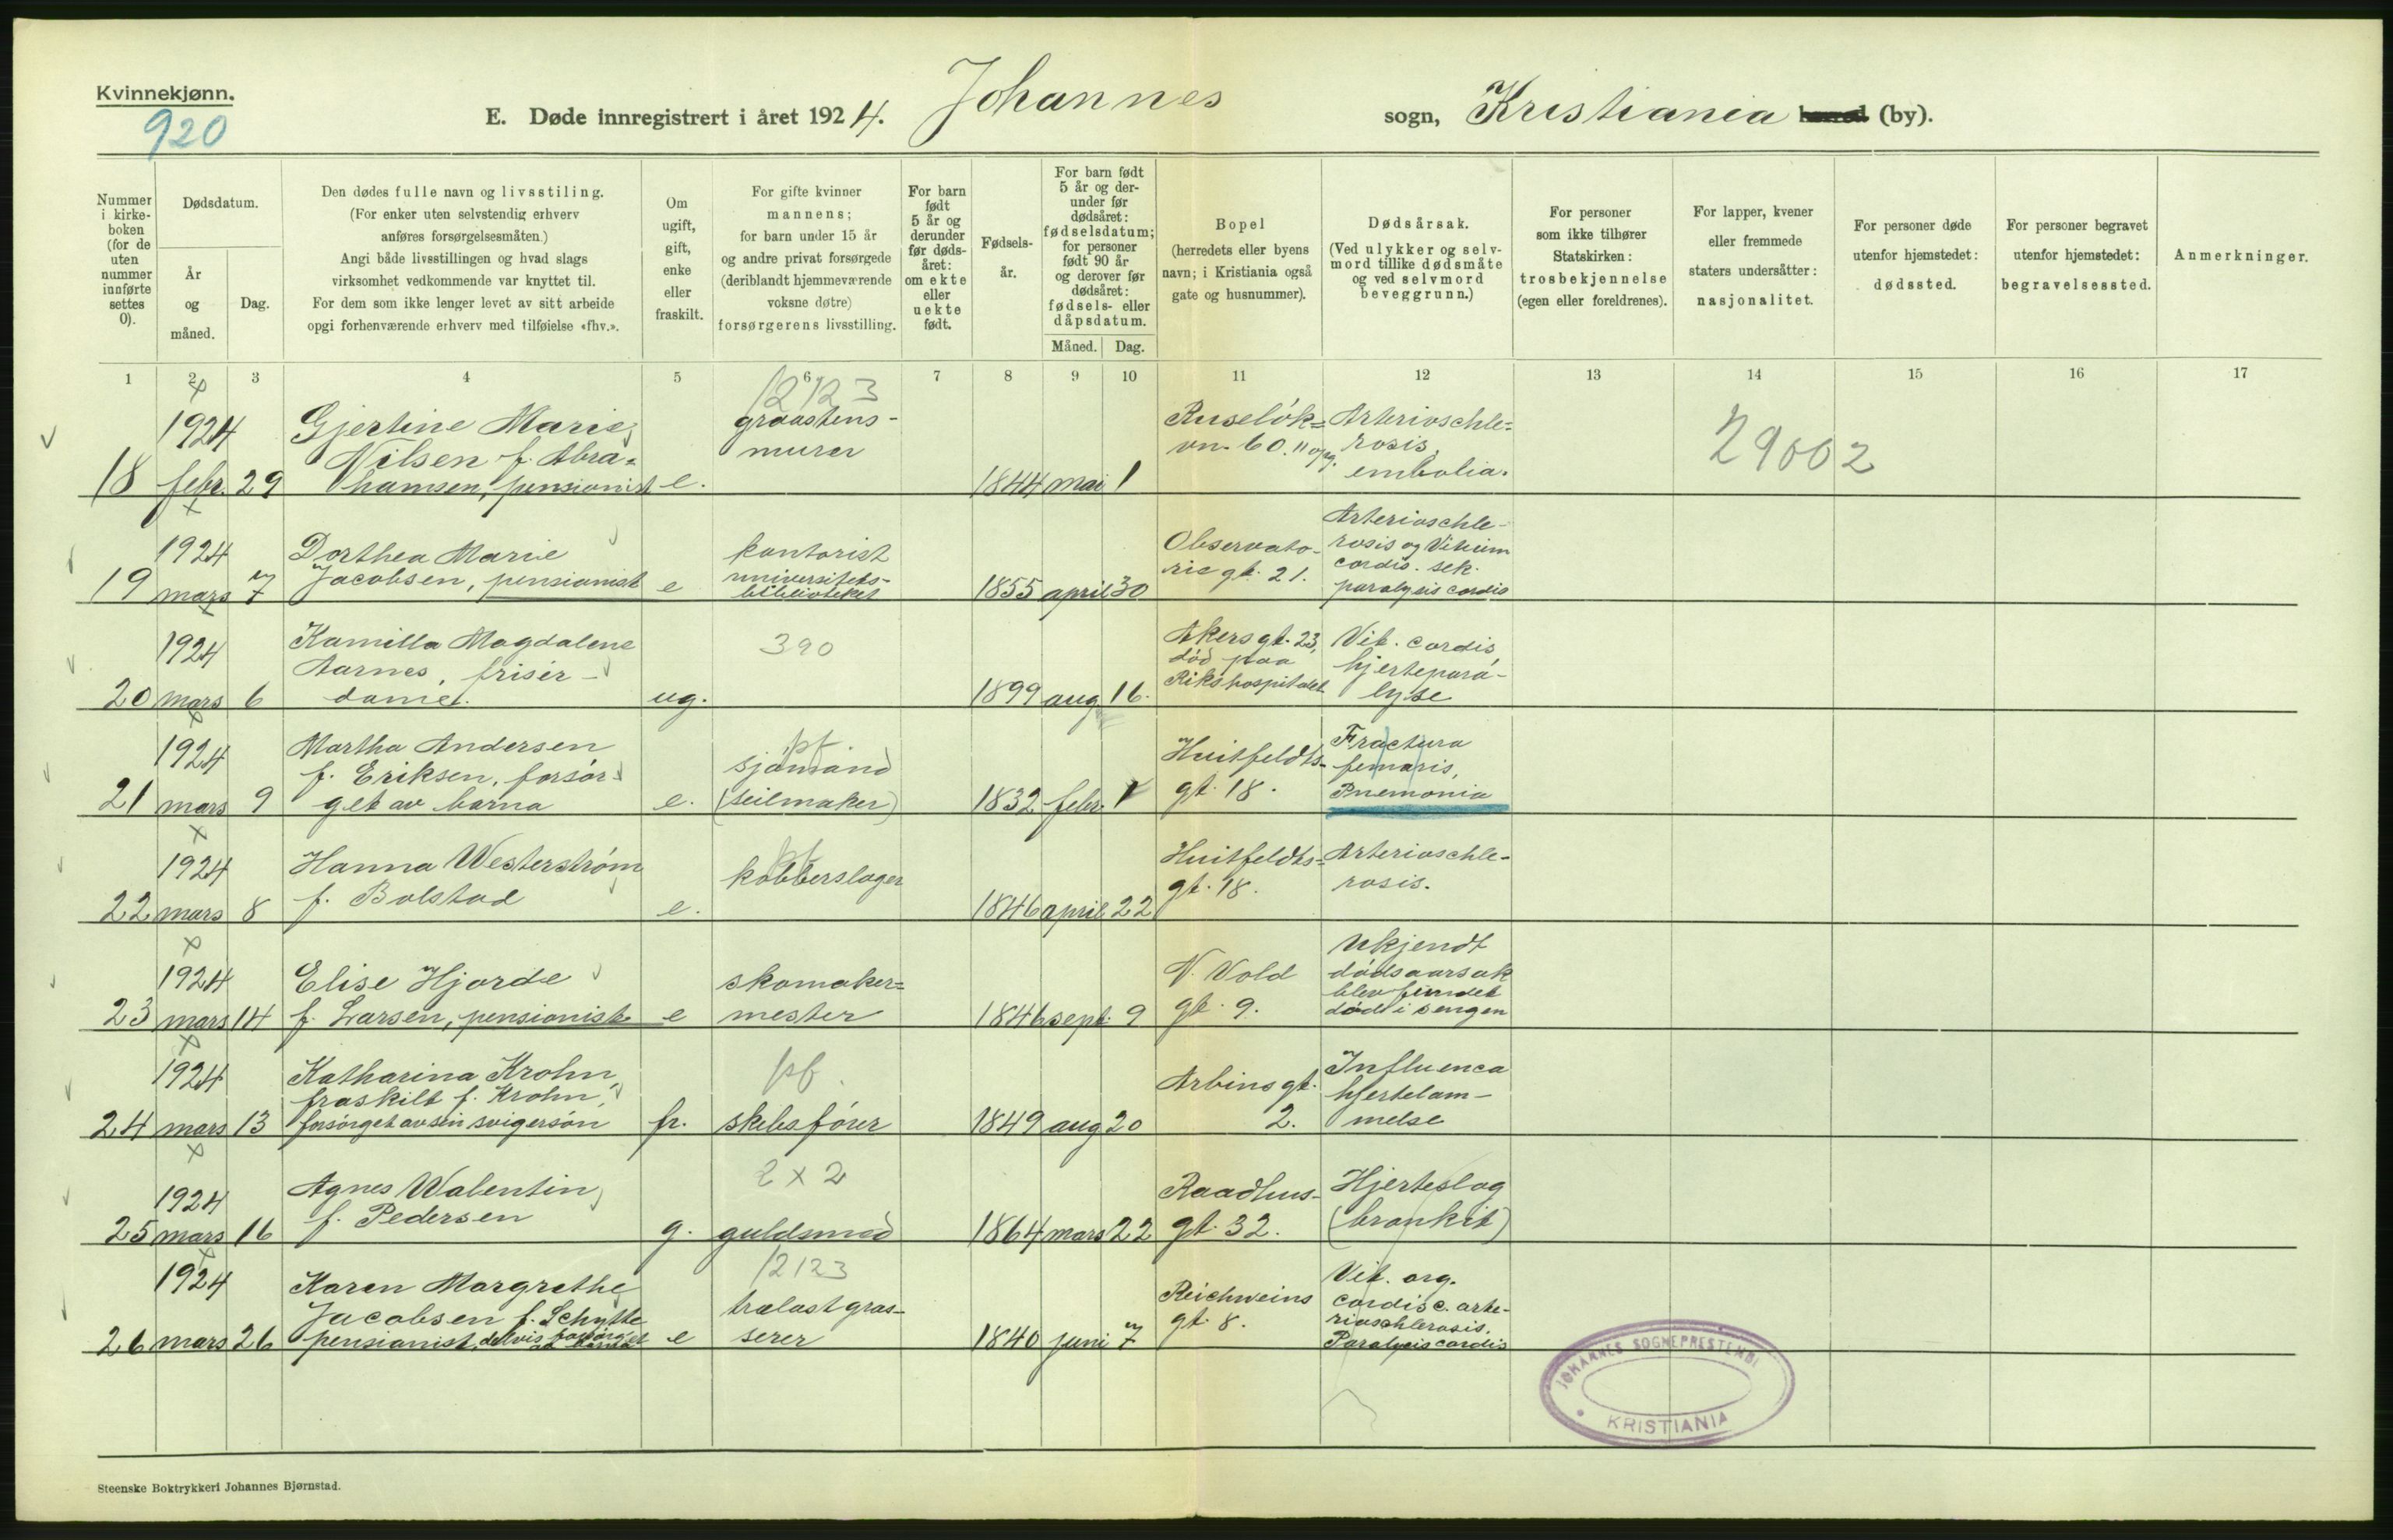 Kvinnekjønn.
920
E. Døde innregistrert i året 1924. Johannes sogn, Kristiania herred (by).
Nummer i kirke-boken (for de uten nummer innførte settes 0).
Dødsdatum.
År og måned.
Dag.
Den dødes fulle navn og livsstiling.
(For enker uten selvstendig erhverv
anføres forsørgelsesmåten.)
Angi både livsstillingen og hvad slags
virksomhet vedkommende var knyttet til.
For dem som ikke lenger levet av sitt arbeide
opgi forhenværende erhverv med tilføielse «fhv.».
Om
ugift,
gift,
enke
eller
fraskilt.
For gifte kvinner
mannens;
for barn under 15 år
og andre privat forsørgede
(deriblandt hjemmeværende
voksne døtre)
forsørgerens livsstilling.
For barn
født
5 år og
derunder
før døds-
året:
om ekte
eller
uekte
født.
Fødsels-
år.
For barn født
5 år og der-
under før
dødsåret:
fødselsdatum;
for personer
født 90 år
og derover før
dødsåret:
fødsels- eller
dåpsdatum.
Måned. Dag.
Bopel
(herredets eller byens
navn; i Kristiania også
gate og husnummer).
Dødsårsak.
(Ved ulykker og selv-
mord tillike dødsmåte
og ved selvmord
beveggrunn.)
For personer
som ikke tilhører
Statskirken:
trosbekjennelse
(egen eller foreldrenes).
For lapper, kvener
eller fremmede
staters undersåtter:
nasjonalitet.
For personer døde
utenfor hjemstedet:
dødssted.
For personer begravet
utenfor hjemstedet:
begravelsessted.
Anmerkninger.
1 2 3 4 5 6 7 8 9 10 11 12 13 14 15 16 17
12123
1924 Gjertine Marie graastens- Ruseløk= Arterioschle=
Nilsen f. Abra= murer vn. 60. II opg. rosis, 29002
18 febr. 29 hamsen, pensionist e. 1844 mai 1 embolia.
Arterioschle-
1924 Dorthea Marie kontorist Observato- rosis og Vitium
Jacobsen, pensionist universitets- rie gt. 21. cordis. sek.
19 mars 7 e biblioteket 1855 april 30 paralysis cordis
1924 Kamilla Magdalene 390 Akersgt. 23, Vit. cordis
Aarnes, frisér- død paa hjertepara-
20 mars 6 dame. ug. 1899 aug 16. Rikshospitalet lyse
1924 Martha Andersen pf. Huitfeldts- Fractura
f. Eriksen, forsør- sjømand femoris,
21 mars 9 get av barna e. (seilmaker) 1832 febr. 1 gt. 18. Pnemonia
1924 Hanna Westerstrøm pf Huitfeldts= Arterioschle-
f. Bolstad kobberslager gt. 18. rosis.
22 mars 8 e. 1846 april 22
Ukjendt
1924 Elise Hjorde skomaker= N. Vold dødsaarsak
blev fundet
23 mars 14 f. Larsen, pensionist e mester 1846 sept. 9 gt. 9. død i sengen
1924 Katharina Krohn, pf. Arbinsgt. Influenca
fraskilt f. Krohn, hjertelam-
24 mars 13 forsørget av sin svigersøn fr. skibsfører 1849 aug 20 2. melse
2 x 2
1924 Agnes Walentin Raadhus- Hjerteslag
f. Pedersen
25 mars 16 g. guldsmed 1864 mars 22 gt. 32. (bronkit)
12123
1924 Karen Margrethe trælastgros- Reichweins Vit. org.
Jacobsen f. Schytte cordis c. arte-
rioschlerosis.
26 mars 26 pensionist, delvis forsørget av barna e serer 1840 juni 7 gt. 8. Paralysis cordis
JOHANNES SOGNEPRESTEMB.
KRISTIANIA
Steenske Boktrykkeri Johannes Bjørnstad.